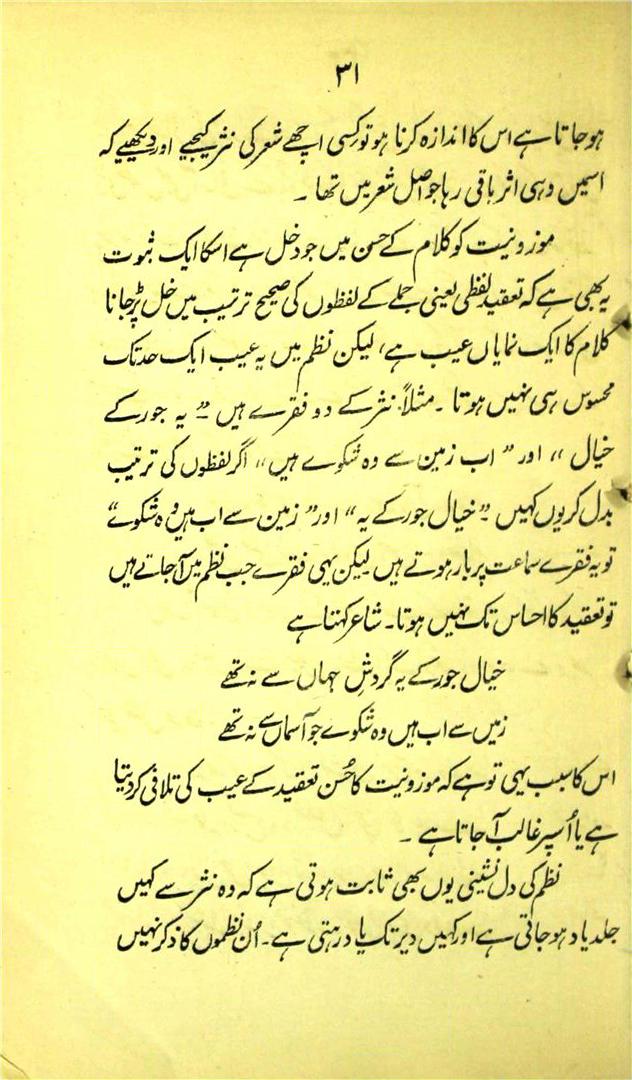 ۳۱
ہوجاتا ہے اس کا اندازہ کرنا ہو تو کسی اچھے شعر کی نثر کیجیے اور دیکھیے کہ
اسمیں وہی اثر باقی رہا جو اصل شعر میں تھا ۔
موزونیت کو کلام کے حسن میں جو دخل ہے اسکا ایک ثبوت
یہ بھی ہے کہ تعقید لفظی یعنی جملے کے لفظوں کی صحیح ترتیب میں خلل پڑ جانا
کلام کا ایک نمایاں عیب ہے، لیکن نظم میں یہ عیب ایک حد تک
محسوس ہی نہیں ہوتا ۔ مثلاً نثر کے دو فقرے ہیں ۔" یہ جور کے
خیال " اور " اب زمین سے وہ شکوے ہیں " اگر لفظوں کی ترتیب
بدل کر یوں کہیں ۔" خیال جور کے یہ " اور " زمین سے اب ہیں وہ شکوے "
تو یہ فقرے سماعت پر بار ہوتے ہیں لیکن یہی فقرے جب نظم میں آجاتے ہیں
تو تعقید کا احساس تک نہیں ہوتا۔ شاعر کہتا ہے
خیال جور کے یہ گردشِ جہاں سے نہ تھے
زمیں سے اب ہیں وہ شکوے جو آسماں سے نہ تھے
اس کا سبب یہی تو ہے کہ موزونیت کا حُسن تعقید کے عیب کی تلافی کر دیتا
ہے یا اُسپر غالب آجاتا ہے ۔
نظم کی دل نشینی یوں بھی ثابت ہوتی ہے کہ وہ نثر سے کہیں
جلد یاد ہوجاتی ہے اور کہیں دیر تک یاد رہتی ہے۔ اُن نظموں کا ذکر نہیں